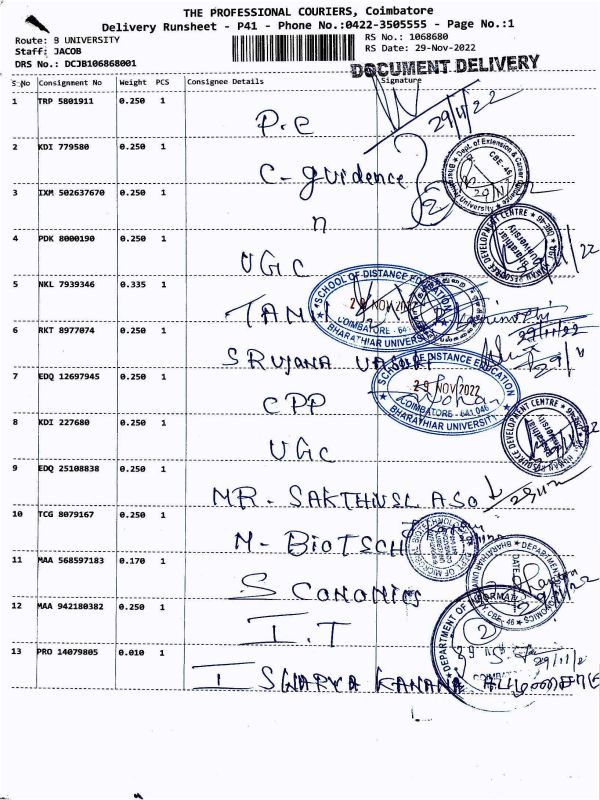 THE PROFESSIONAL COURIERS, Coimbatore
Delivery Runsheet - P41 - Phone No.:0422-3505555 - Page No.:1
Route: B UNIVERSITY
Staff: JACOB
DRS No.: DCJB106868001
RS No.: 1068680
RS Date: 29-Nov-2022
DOCUMENT DELIVERY
S No Consignment No Weight PCS Consignee Details Signature
1 TRP 5801911 0.250 1 P.C 29/11/22
2 KDI 779580 0.250 1 C-guidence
3 IXM 502637670 0.250 1 n
4 PDK 8000190 0.250 1 UGC
5 NKL 7939346 0.335 1 TAMIL
6 RKT 8977074 0.250 1 SRUJANA VASUKI
7 EDQ 12697945 0.250 1 CPP
8 KDI 227680 0.250 1 UGC
9 EDQ 25108838 0.250 1 MR. SAKTHIVSL ASO
10 TCG 8079167 0.250 1 M-BIOTSCH
11 MAA 568597183 0.170 1 S CONOMICS
12 MAA 942180382 0.250 1 I.T
13 PRO 14079805 0.010 1 ISWARYA KANANA
SCHOOL OF DISTANCE EDUCATION
29 NOV 2022
COIMBATORE - 641 046
BHARATHIAR UNIVERSITY
SCHOOL OF DISTANCE EDUCATION
29 NOV 2022
COIMBATORE - 641 046
BHARATHIAR UNIVERSITY
Dept. of Extension & Career
CBE-46
HUMAN RESOURCE DEVELOPMENT CENTRE
Bharathiar University
HUMAN RESOURCE DEVELOPMENT CENTRE
Bharathiar University